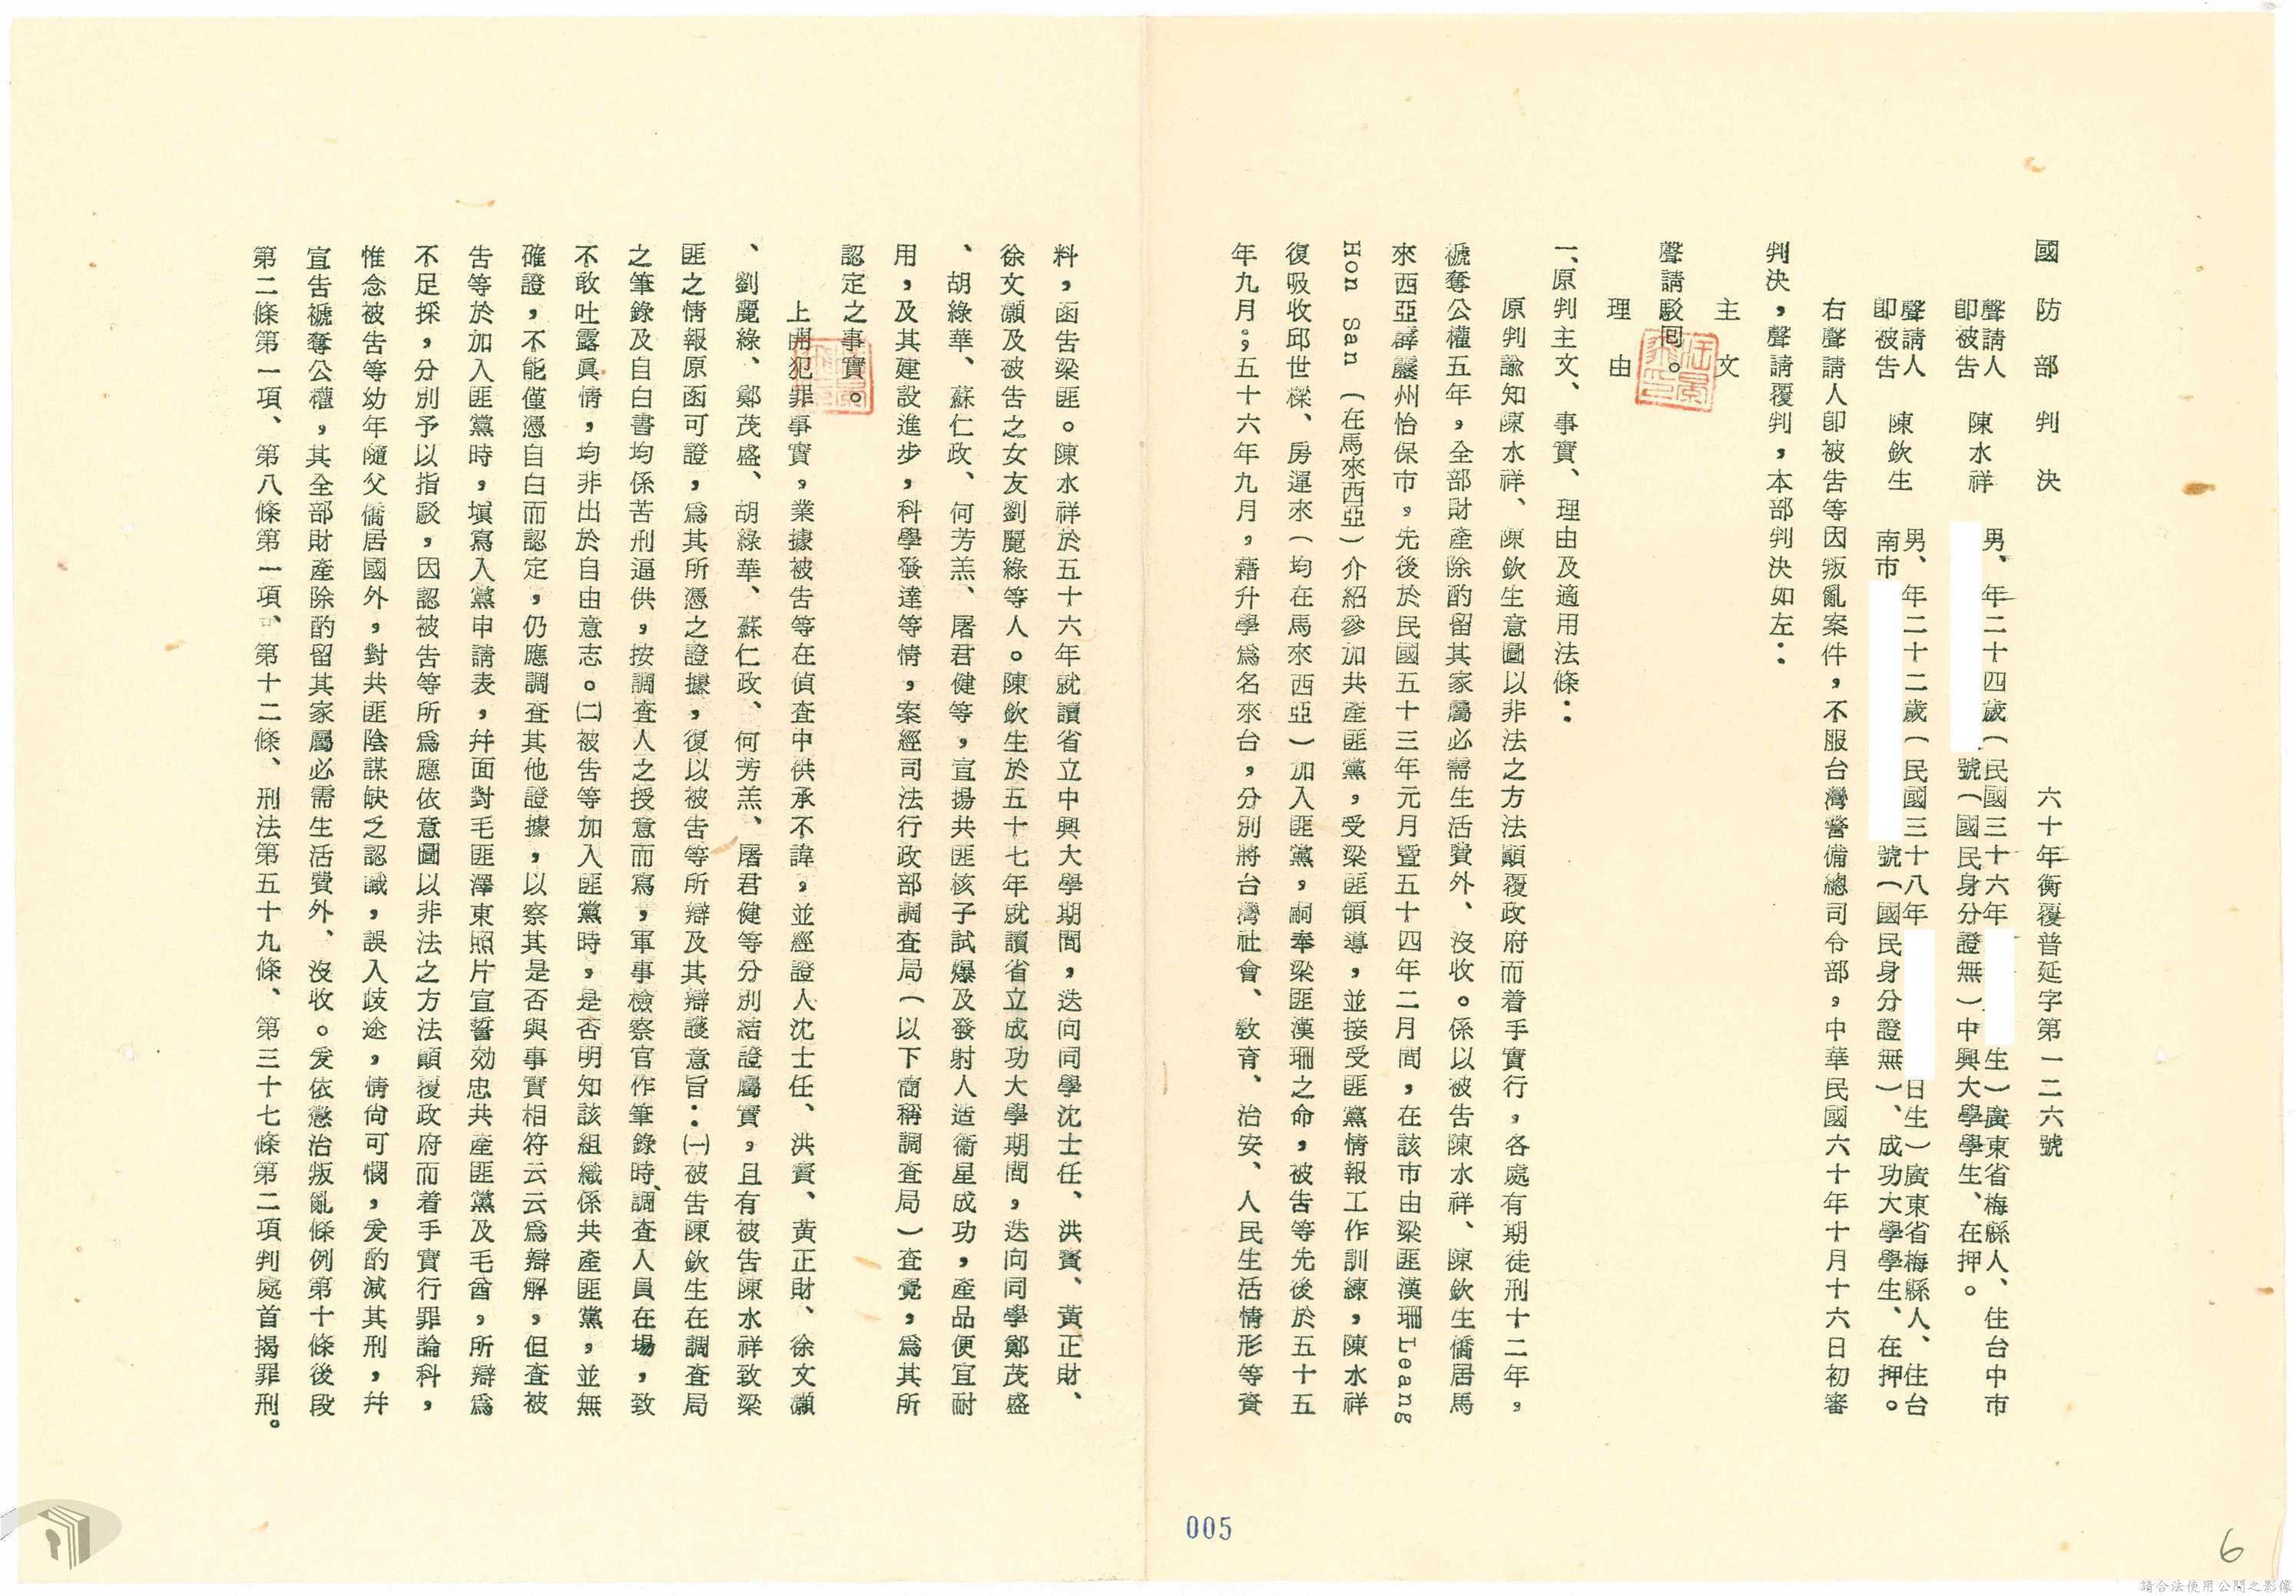 國防部判決　六十年衡覆普延字第一二六號
聲請人
即被告　陳水祥　男、年二十四歲（民國三十六年　生）廣東省梅縣人、住台中市
號（國民身分證無）中興大學學生、在押。
聲請人
即被告　陳欽生　男、年二十二歲（民國三十八年　日生）廣東省梅縣人、住台
南市　號（國民身分證無）、成功大學學生、在押。
右聲請人即被告等因叛亂案件，不服台灣警備總司令部，中華民國六十年十月十六日初審
判決，聲請覆判，本部判決如左：
主文
聲請駁回。
理由
一、原判主文、事實、理由及適用法條：
原判諭知陳水祥、陳欽生意圖以非法之方法顚覆政府而着手實行，各處有期徒刑十二年，
褫奪公權五年，全部財產除酌留其家屬必需生活費外、沒收。係以被告陳水祥、陳欽生僑居馬
來西亞霹靂州怡保市，先後於民國五十三年元月暨五十四年二月間，在該市由梁匪漢珊Leang
Hon San（在馬來西亞）介紹參加共產匪黨，受梁匪領導，並接受匪黨情報工作訓練，陳水祥
復吸收邱世樑、房運來（均在馬來西亞）加入匪黨，嗣奉梁匪漢珊之命，被告等先後於五十五
年九月；五十六年九月，藉升學爲名來台，分別將台灣社會、教育、治安、人民生活情形等資
料，函告梁匪。陳水祥於五十六年就讀省立中興大學期間，迭向同學沈士任、洪寶、黃正財、
徐文灝及被告之女友劉麗綠等人。陳欽生於五十七年就讀省立成功大學期間，迭向同學鄭茂盛
、胡綠華、蘇仁政、何芳羔、屠君健等，宣揚共匪核子試爆及發射人造衞星成功，產品便宜耐
用，及其建設進步，科學發達等情，案經司法行政部調查局（以下簡稱調查局）查覺，爲其所
認定之事實。
上開犯罪事實，業據被告等在偵查中供承不諱，並經證人沈士任、洪寶、黃正財、徐文灝
、劉麗綠、鄭茂盛、胡綠華、蘇仁政、何芳羔、屠君健等分別結證屬實，且有被告陳水祥致梁
匪之情報原函可證，爲其所憑之證據，復以被告等所辯及其辯護意旨：㈠被告陳欽生在調查局
之筆錄及自白書均係苦刑逼供，按調查人之授意而寫，軍事檢察官作筆錄時、調查人員在場，致
不敢吐露眞情，均非出於自由意志。㈡被告等加入匪黨時，是否明知該組織係共產匪黨，並無
確證，不能僅憑自白而認定，仍應調查其他證據，以察其是否與事實相符云云爲辯解，但查被
告等於加入匪黨時，塡寫入黨申請表，幷面對毛匪澤東照片宣誓効忠共產匪黨及毛酋，所辯爲
不足採，分別予以指駁，因認被告等所爲應依意圖以非法之方法顚覆政府而着手實行罪論科，
惟念被告等幼年隨父僑居國外，對共匪陰謀缺乏認識，誤入歧途，情尚可憫，爰酌減其刑，幷
宣告褫奪公權，其全部財產除酌留其家屬必需生活費外、沒收。爰依懲治叛亂條例第十條後段
第二條第一項、第八條第一項、第十二條、刑法第五十九條、第三十七條第二項判處首揭罪刑。
005
6
請合法使用公開之影像